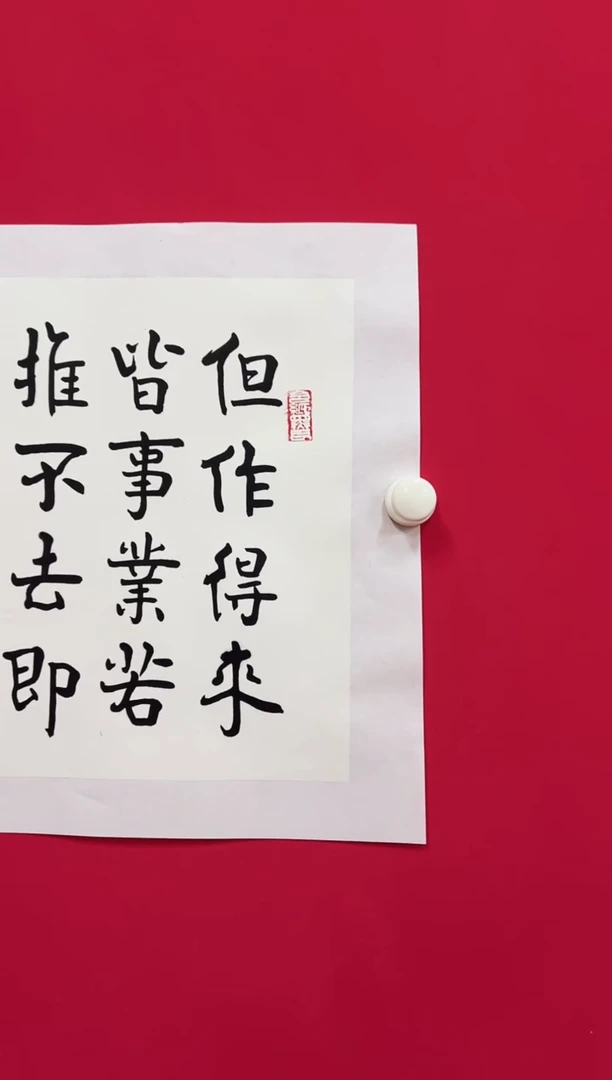 但作得來
皆事業若
推不去即